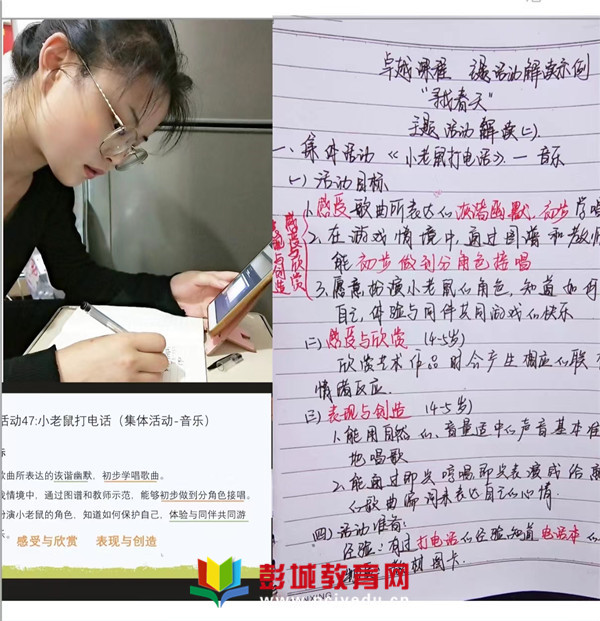 活动47:小老鼠打电话（集体活动-音乐）
标
歌曲所表达的诙谐幽默，初步学唱歌曲。
戏情境中，通过图谱和教师示范，能够初步做到分角色接唱。
扮演小老鼠的角色，知道如何保护自己，体验与同伴共同游
乐。
感受与欣赏 表现与创造
卓越课程 主题活动解读示例
"寻找春天"
主题活动解读(二)
一、集体活动《小老鼠打电话》—音乐
(一)活动目标
1.感受歌曲所表达的诙谐幽默,初步学唱
2.在游戏情境中,通过图谱和教师
能初步做到分角色接唱
3.愿意扮演小老鼠的角色,知道如何
自己,体验与同伴共同游戏的快乐
感受与欣赏
表现与创造
(二)感受与欣赏 (4-5岁)
欣赏艺术作品时会产生相应的联
情绪反应.
(三)表现与创造 (4-5岁)
1.能用自然的、音量适中的声音基本准
地唱歌
2.能通过即兴哼唱、即兴表演或给熟
的歌曲编词来表达自己的心情.
(四)活动准备:
经验:有过打电话的经验,知道电话本的
图卡.
彭城教育网